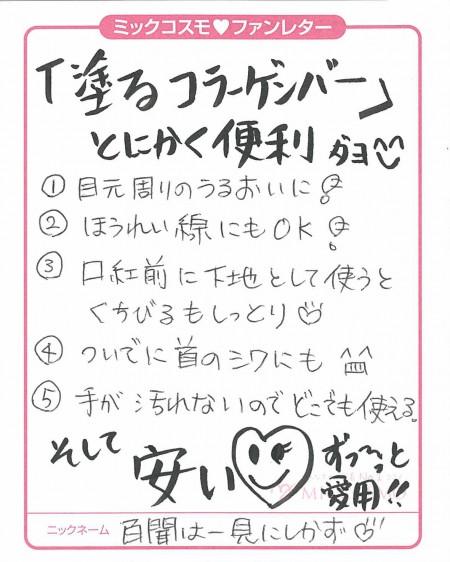 ミックコスモ♥ファンレター
「塗るコラーゲンバー」
とにかく便利 ダヨ
① 目元周りのうるおいに!
② ほうれい線にもOK!
③ 口紅前に下地として使うと
くちびるもしっとり♡
④ ついでに首のシワにも
⑤ 手が汚れないのでどこでも使える。
そして 安い
ずーっと
愛用!!
ニックネーム 百聞は一見にしかず♡